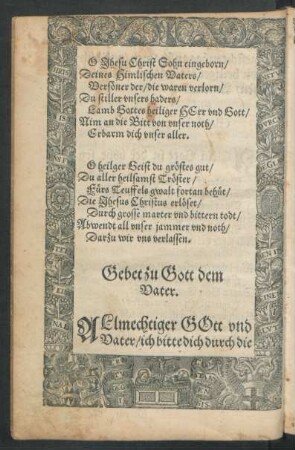 O Jhesu Christ Sohn eingeborn/
Deines Himlischen Vaters/
Versöner der/die waren verlorn/
Du stiller vnsers haders/
Lamb Gottes heiliger HErr vnd Gott/
Nim an die Bitt von vnser noth/
Erbarm dich vnser aller.
O heilger Geist du gröstes gut/
Du aller heilsamst Tröster/
Fürs Teuffels gwalt fortan behüt/
Die Jhesus Christus erlöset/
Durch grosse marter vnd bittern todt/
Abwendt all vnser jammer vnd noth/
Darzu wir vns verlassen.
Gebet zu Gott dem
Vater.
ALmechtiger GOtt vnd
Vater/ich bitte dich durch die